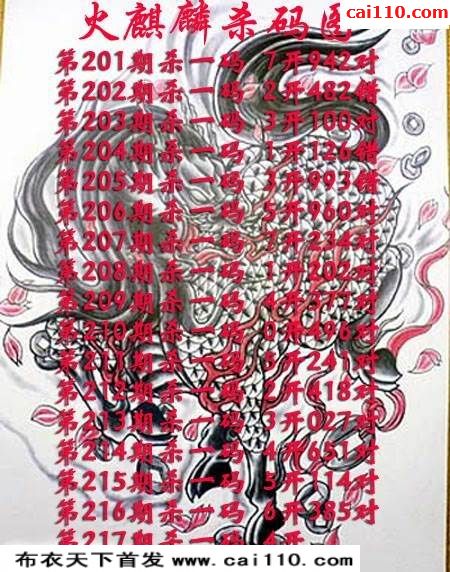 cai110.com
火麒麟杀码图
第201期杀一码 7开942对
第202期杀一码 2开482错
第203期杀一码 3开100对
第204期杀一码 1开126错
第205期杀一码 3开993错
第206期杀一码 5开960对
第207期杀一码 7开234对
第208期杀一码 1开202对
第209期杀一码 4开377对
第210期杀一码 0开496对
第211期杀一码 5开241对
第212期杀一码 2开418对
第213期杀一码 3开027对
第214期杀一码 4开651对
第215期杀一码 5开114对
第216期杀一码 6开385对
第217期杀一码 4开
布衣天下首发 www.cai110.com